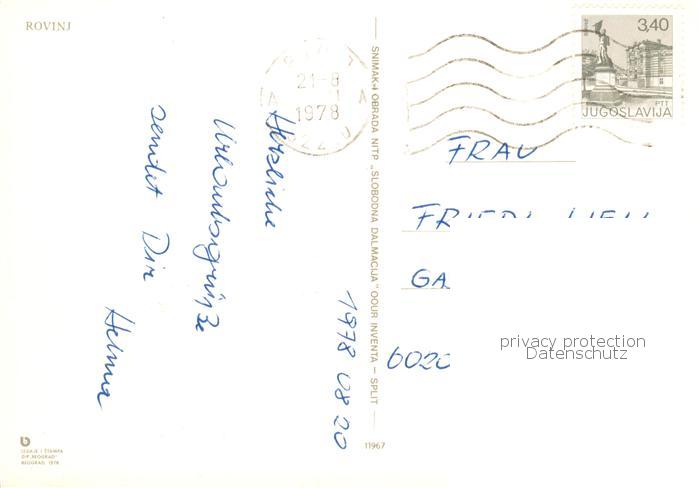 ROVINJ
Herzliche
Urlaubsgrüße
sendet Dir
Helma
1978 08 20
21-8
1978
3,40
PTT
JUGOSLAVIJA
SNIMAK I OBRADA NITP „SLOBODNA DALMACIJA" OOUR INVENTA — SPLIT
FRAU
GA
6020
privacy protection
Datenschutz
IZDAJE I ŠTAMPA
DIP „BEOGRAD"
BEOGRAD, 1978
11967